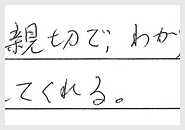 親切で,わか
てくれる。